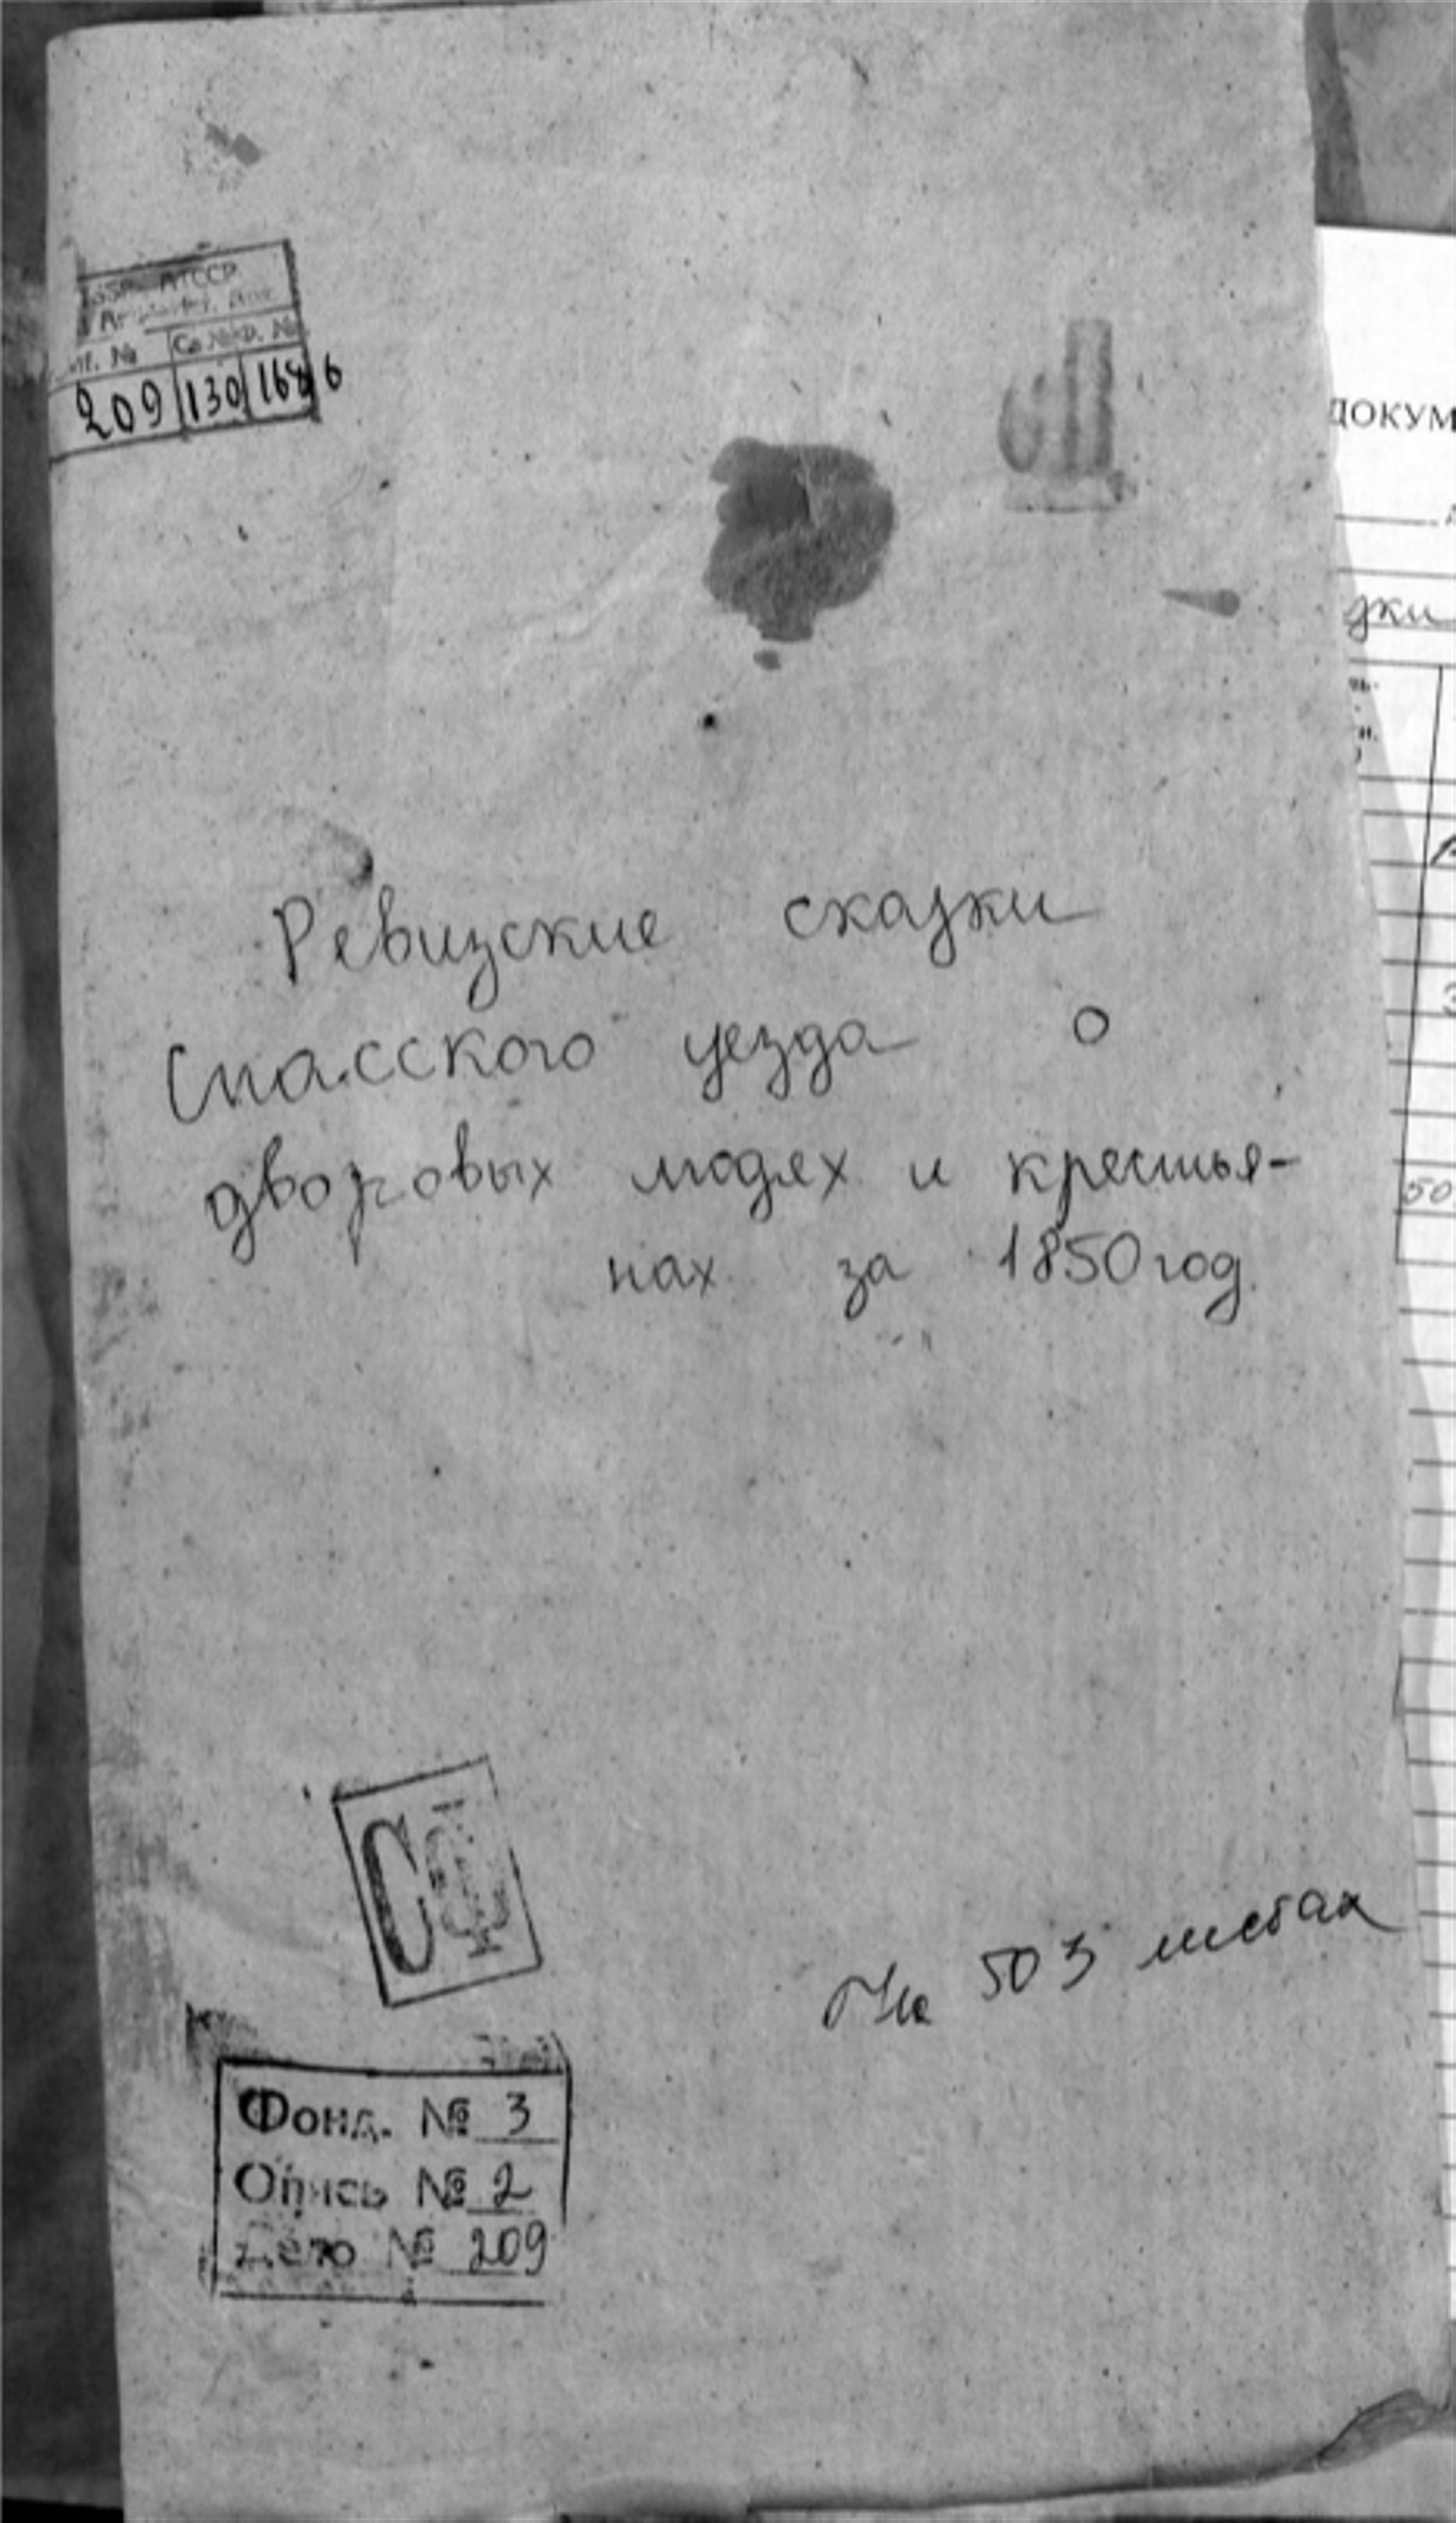 АТССР
№ Св. № Кр. №
209 130 168 6
ДОКУМ
Ревизские сказки
Спасского уезда о
дворовых людях и крестья-
нах за 1850 год
СФ
На 503 листах
Фонд. № 3
Опись № 2
Дело № 209
50